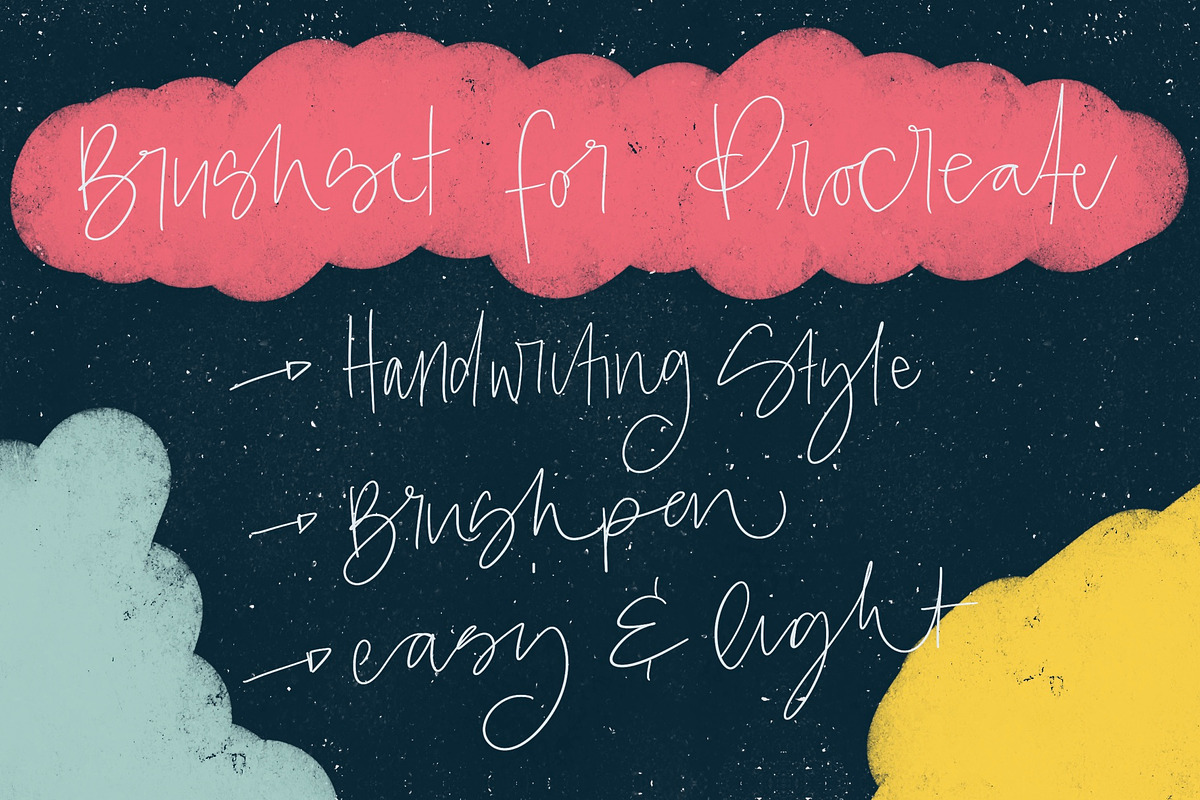 Brushset for Procreate
Handwriting Style
Brushpen
easy & light